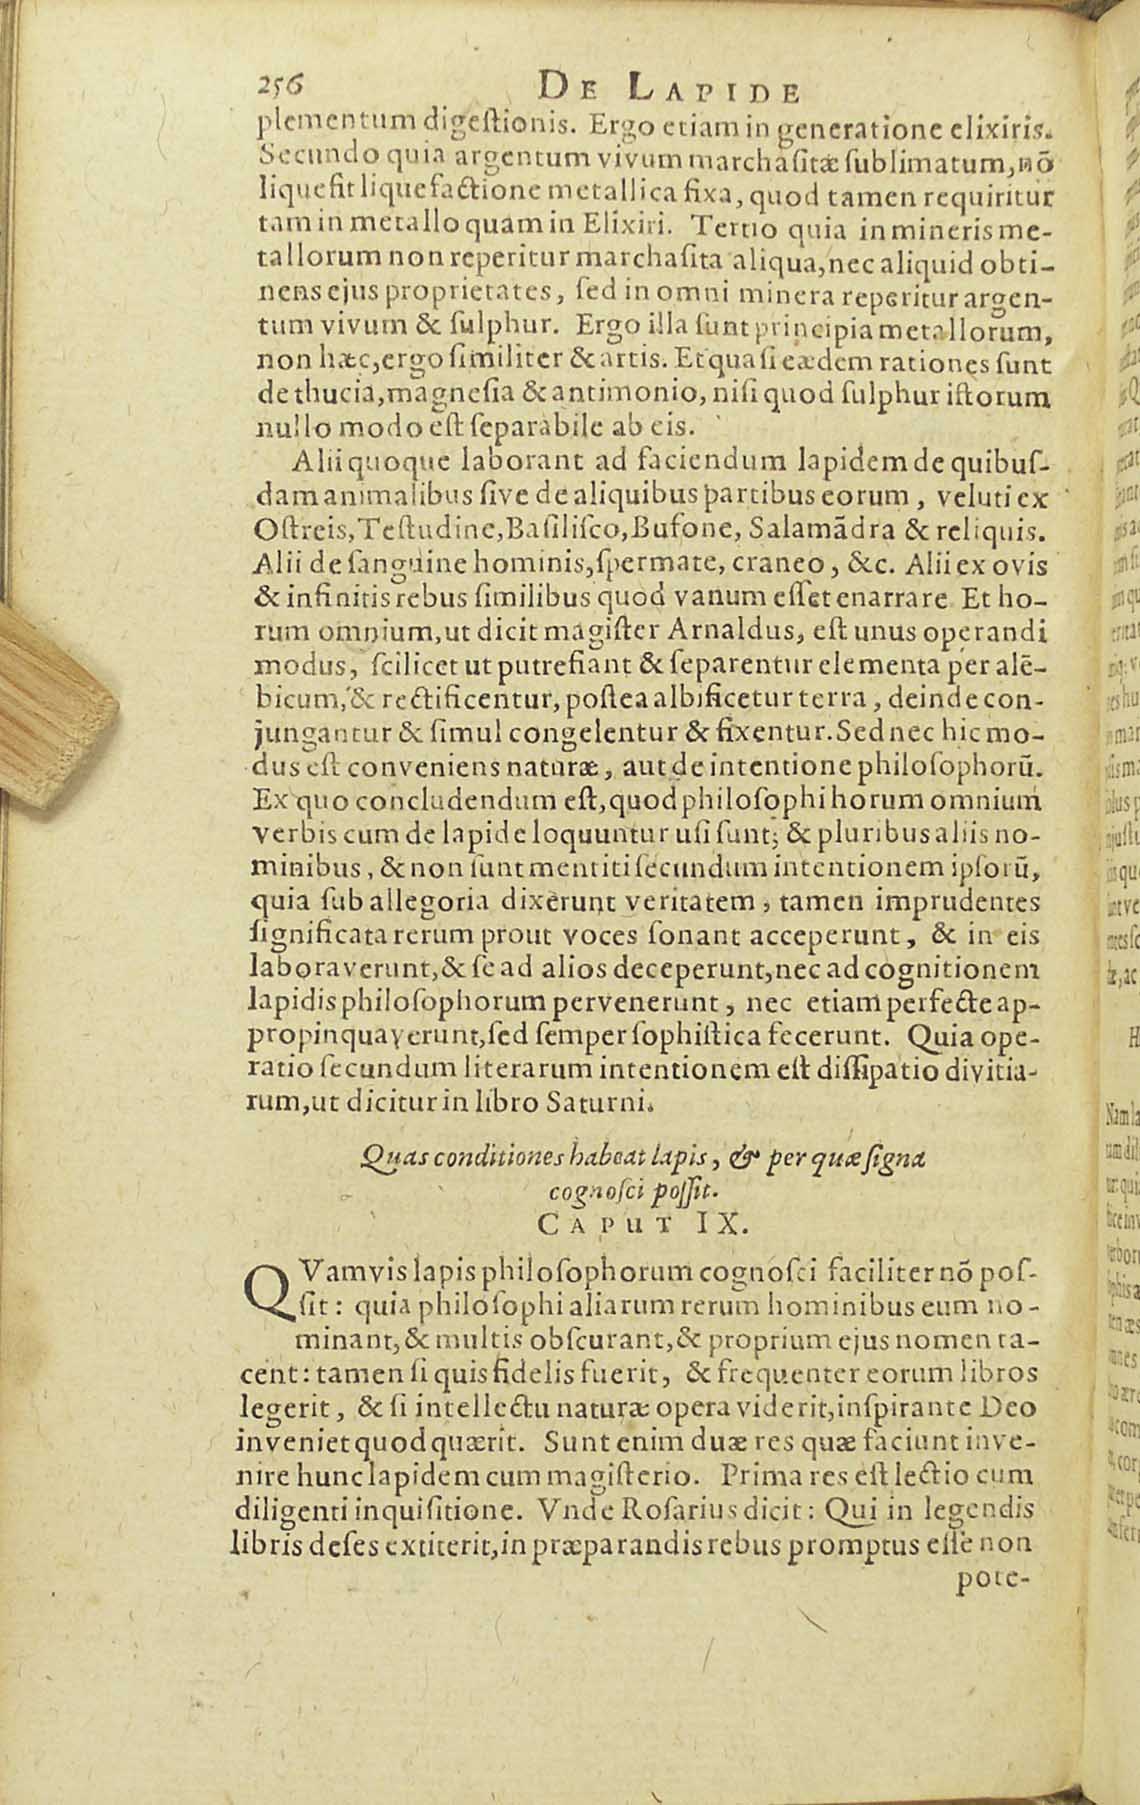 256 DE LAPIDE
plementum digeſtionis. Ergo etiam in generatione elixiris.
Secundo quia argentum vivum marchaſitæ ſublimatum, nō
liquefit liquefactione metallica fixa, quod tamen requiritur
tam in metallo quam in Elixiri. Tertio quia in mineris me-
tallorum non reperitur marchaſita aliqua, nec aliquid obti-
nens ejus proprietates, ſed in omni minera reperitur argen-
tum vivum & ſulphur. Ergo illa ſunt principia metallorum,
non hæc, ergo ſimiliter & artis. Et quaſi eædem rationes ſunt
de thucia, magneſia & antimonio, niſi quod ſulphur iſtorum
nullo modo eſt ſeparabile ab eis.
Alii quoque laborant ad faciendum lapidem de quibuſ-
dam animalibus ſive de aliquibus partibus eorum, veluti ex
Oſtreis, Teſtudine, Baſiliſco, Bufone, Salamādra & reliquis.
Alii de ſanguine hominis, ſpermate, craneo, &c. Alii ex ovis
& infinitis rebus ſimilibus quod vanum eſſet enarrare Et ho-
rum omnium, ut dicit magiſter Arnaldus, eſt unus operandi
modus, ſcilicet ut putrefiant & ſeparentur elementa per alē-
bicum, & rectificentur, poſtea albificetur terra, deinde con-
jungantur & ſimul congelentur & fixentur. Sed nec hic mo-
dus eſt conveniens naturæ, aut de intentione philoſophorū.
Ex quo concludendum eſt, quod philoſophi horum omnium
verbis cum de lapide loquuntur uſi ſunt; & pluribus aliis no-
minibus, & non ſunt mentiti ſecundum intentionem ipſorū,
quia ſub allegoria dixerunt veritatem, tamen imprudentes
ſignificata rerum prout voces ſonant acceperunt, & in eis
laboraverunt, & ſe ad alios deceperunt, nec ad cognitionem
lapidis philoſophorum pervenerunt, nec etiam perfecte ap-
propinquaverunt, ſed ſemper ſophiſtica fecerunt. Quia ope-
ratio ſecundum literarum intentionem eſt diſſipatio divitia-
rum, ut dicitur in libro Saturni.
Quas conditiones habeat lapis, & per quæ ſigna
cognoſci poſſit.
CAPUT IX.
QVamvis lapis philoſophorum cognoſci faciliter nō poſ-
ſit: quia philoſophi aliarum rerum hominibus eum no-
minant, & multis obſcurant, & proprium ejus nomen ta-
cent: tamen ſi quis fidelis fuerit, & frequenter eorum libros
legerit, & ſi intellectu naturæ opera viderit, inſpirante Deo
inveniet quod quærit. Sunt enim duæ res quæ faciunt inve-
nire hunc lapidem cum magiſterio. Prima res eſt lectio cum
diligenti inquiſitione. Vnde Roſarius dicit: Qui in legendis
libris deſes extiterit, in præparandis rebus promptus eſſe non
pote-